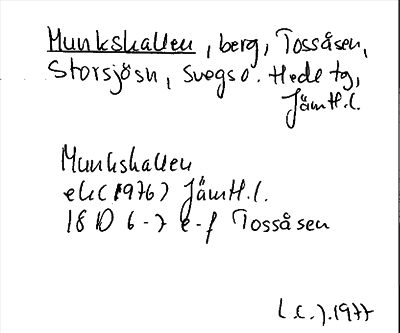 Munkskallen, berg, Tossåsen,
Storsjösn, Svegs o. Hede tg,
Jämtl.l.
Munkskallen
ek (1976) Jämtl.l.
18 D 6-7 e-f Tossåsen
1977